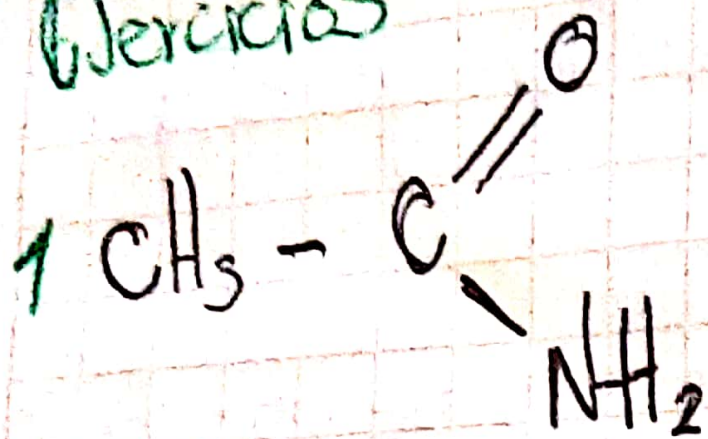 Ejercicios
O
1 CH3 - C
NH2